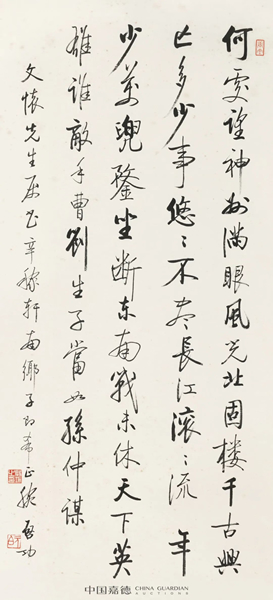 何處望神州滿眼風光北固樓千古興
亡多少事悠〻不盡長江滾〻流 年
少萬兜鍪坐斷東南戰未休天下英
雄誰敵手曹劉生子當如孫仲謀
文懷先生屬書辛稼軒南鄉子即希正腕 啟功
中国嘉德 CHINA GUARDIAN
AUCTIONS